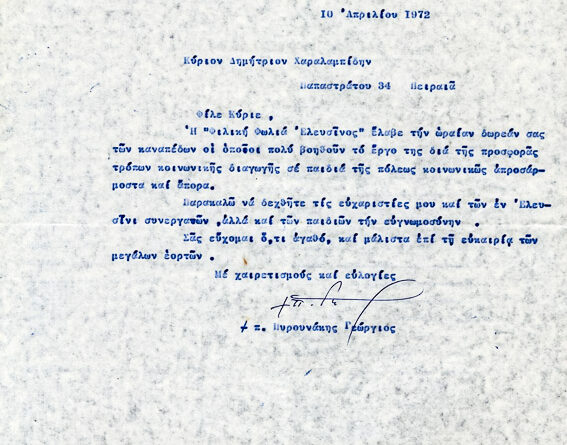 10 Ἀπριλίου 1972
Κύριον Δημήτριον Χαραλαμπίδην
Παπαστράτου 34 Πειραιᾶ
Φίλε Κύριε ,
Ἡ "Φιλική Φωλιά Ἐλευσῖνος" ἔλαβε τήν ὡραίαν δωρεάν σας
τῶν καναπέδων οἱ ὁποῖοι πολύ βοηθοῦν τό ἔργο της διά τῆς προσφορᾶς
τρόπων κοινωνικῆς διαγωγῆς σέ παιδιά τῆς πόλεως κοινωνικῶς ἀπροσάρ-
μοστα καί ἄπορα.
Παρακαλῶ νά δεχθῆτε τίς εὐχαριστίες μου καί τῶν ἐν Ἐλευ-
σῖνι συνεργατῶν ,ἀλλά καί τῶν παιδιῶν τήν εὐγνωμοσύνην .
Σᾶς εὔχομαι ὅ,τι ἀγαθό, καί μάλιστα ἐπί τῇ εὐκαιρίᾳ τῶν
μεγάλων ἑορτῶν .
Μέ χαιρετισμούς καί εὐλογίες
+ π. Πυρουνάκης Γεώργιος